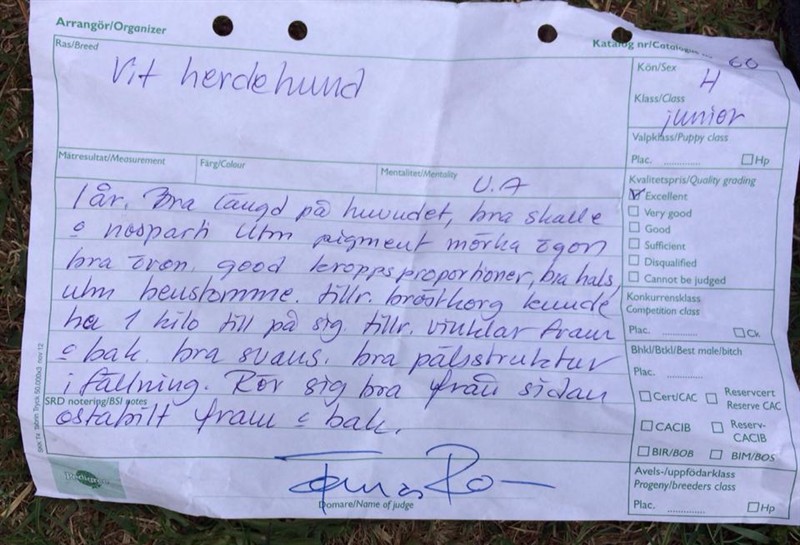 Arrangör/Organizer
Katalog nr/Catalogue 60
Ras/Breed
Vit herdehund
Kön/Sex
H
Klass/Class
junior
Valpklass/Puppy class
Plac. ............ ☐ Hp
Mätresultat/Measurement
Färg/Colour
Mentalitet/Mentality
U.A
Kvalitetspris/Quality grading
☑ Excellent
☐ Very good
☐ Good
☐ Sufficient
☐ Disqualified
☐ Cannot be judged
1 år. Bra längd på huvudet, bra skalle
o nosparti utm pigment mörka ögon
bra öron, good kroppsproportioner, bra hals,
utm benstomme. tillr. bröstkorg kunde
ha 1 kilo till på sig. tillr. vinklar fram
o bak. bra svans. bra pälsstruktur
i fällning. Rör sig bra från sidan
ostabilt fram o bak.
SRD notering/BSI notes
Konkurrensklass
Competition class
Plac. ............ ☐ Ck
Bhkl/Btkl/Best male/bitch
Plac. ............
☐ Cert/CAC ☐ Reservcert
Reserve CAC
☐ CACIB ☐ Reserv-
CACIB
☐ BIR/BOB ☐ BIM/BOS
Avels-/uppfödarklass
Progeny/breeders class
Plac. ............ ☐ Hp
Pedigree
Domare/Name of judge